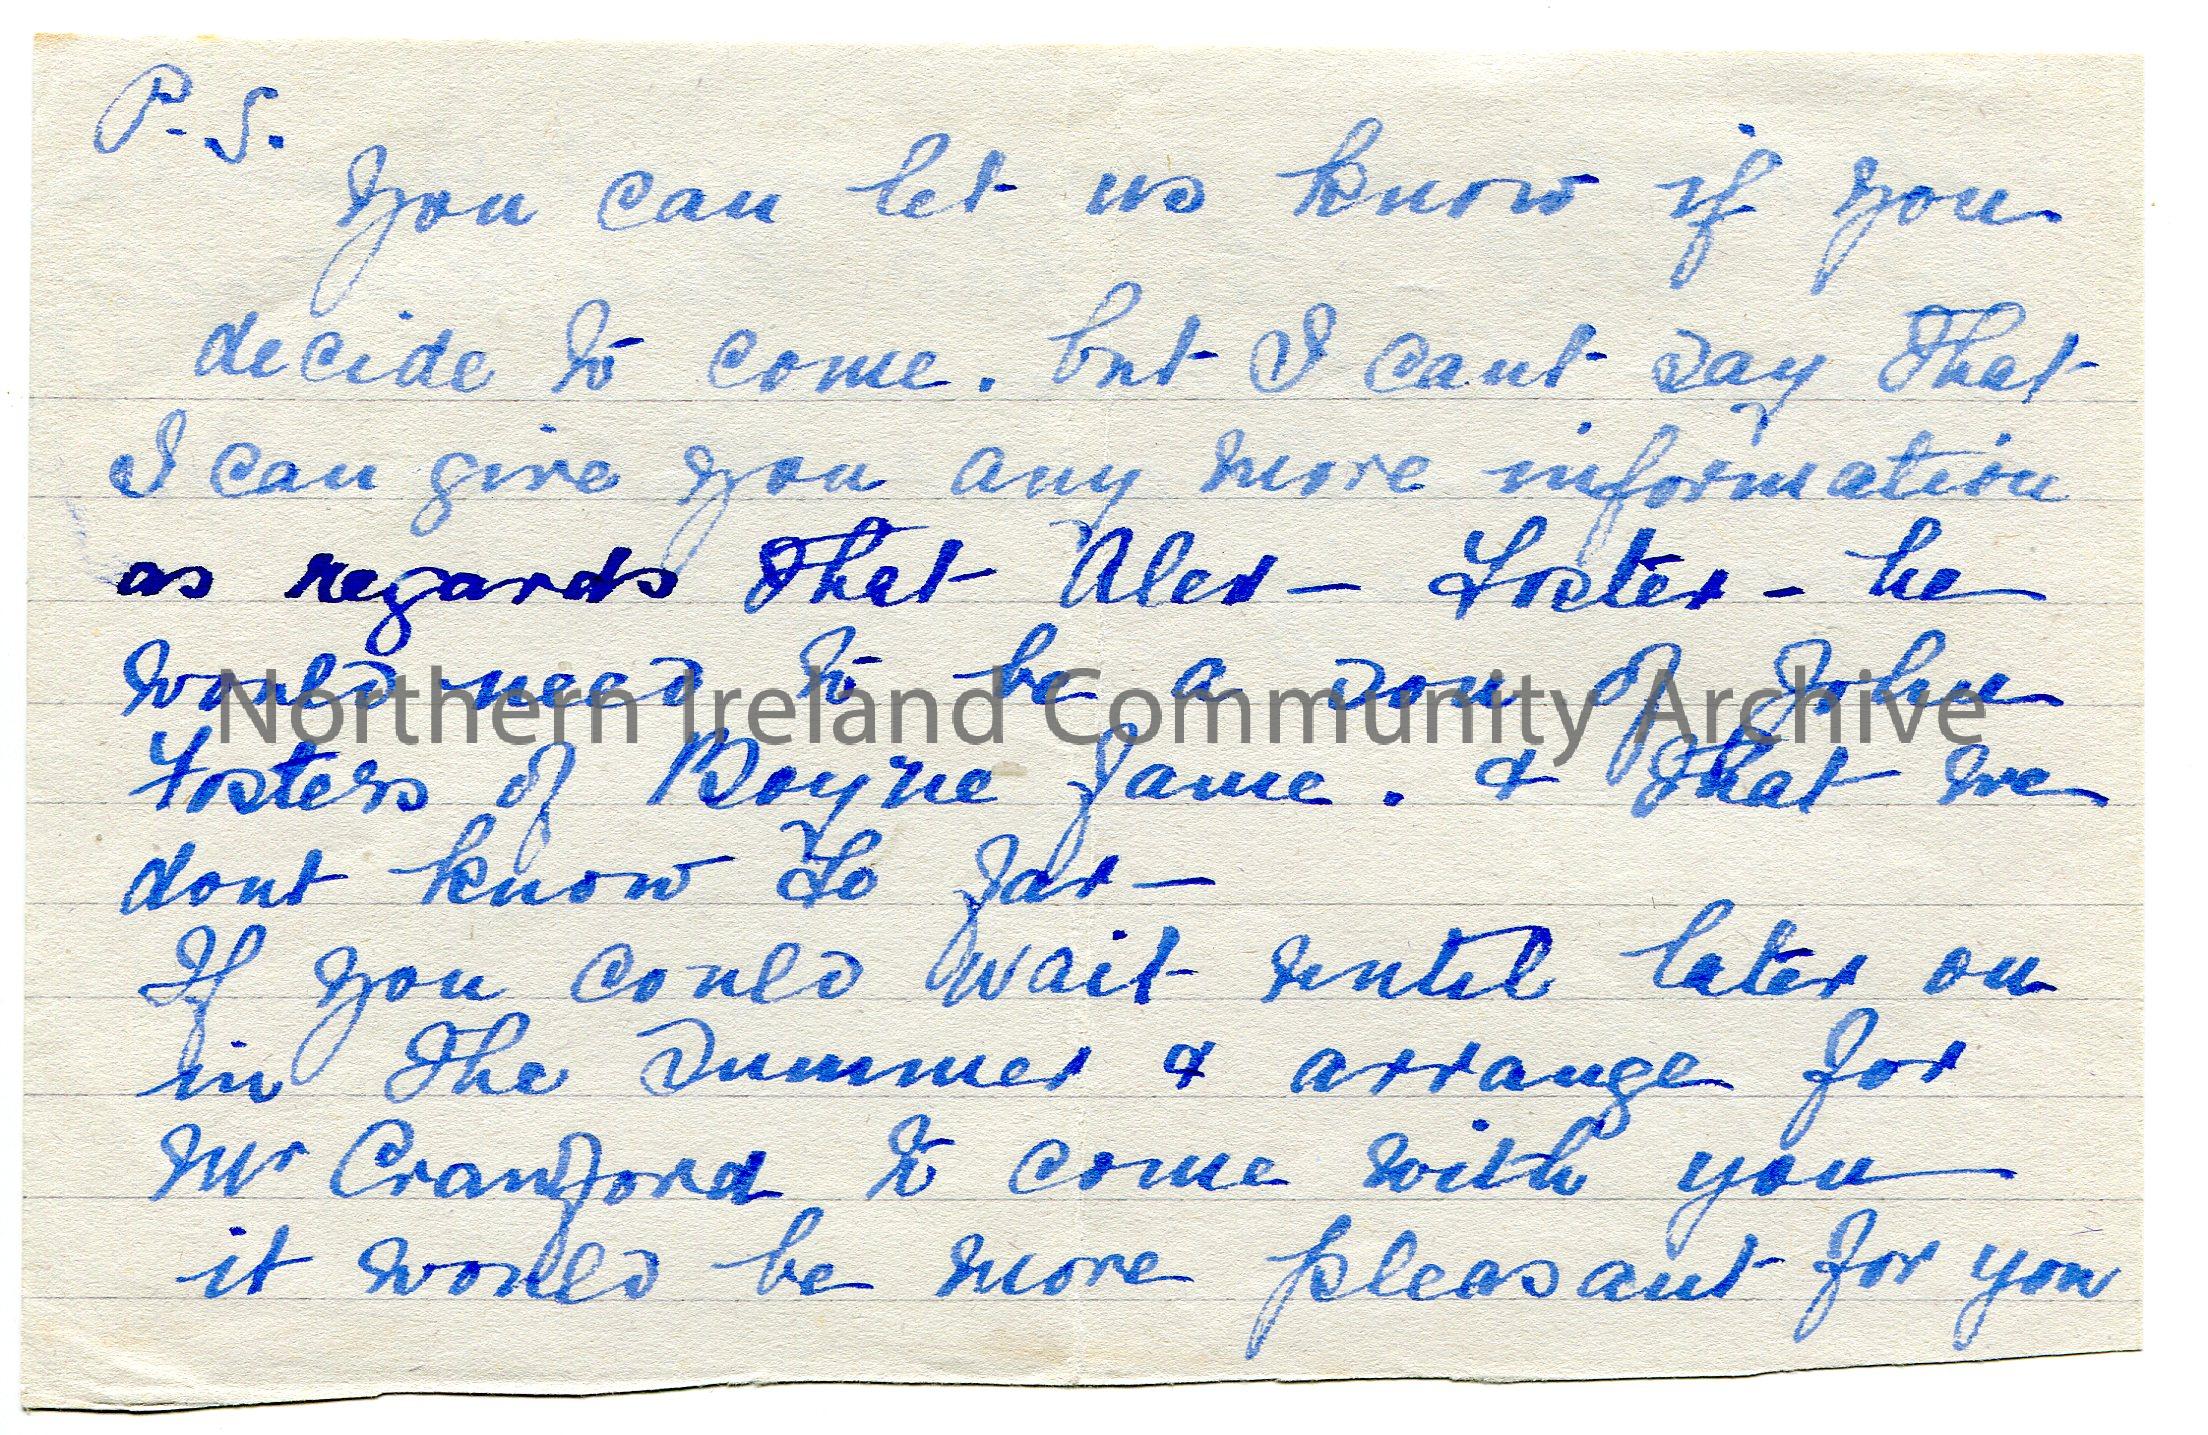 P.S.
You can let us know if you
decide to come. but I cant say that
I can give you any more information
as regards that Alex - Foster - he
would need to be a son of John
Fosters of Boyne fame. & that we
dont know so far -
If you could wait until later on
in the summer & arrange for
Mr Crawford to come with you
it would be more pleasant for you
Northern Ireland Community Archive